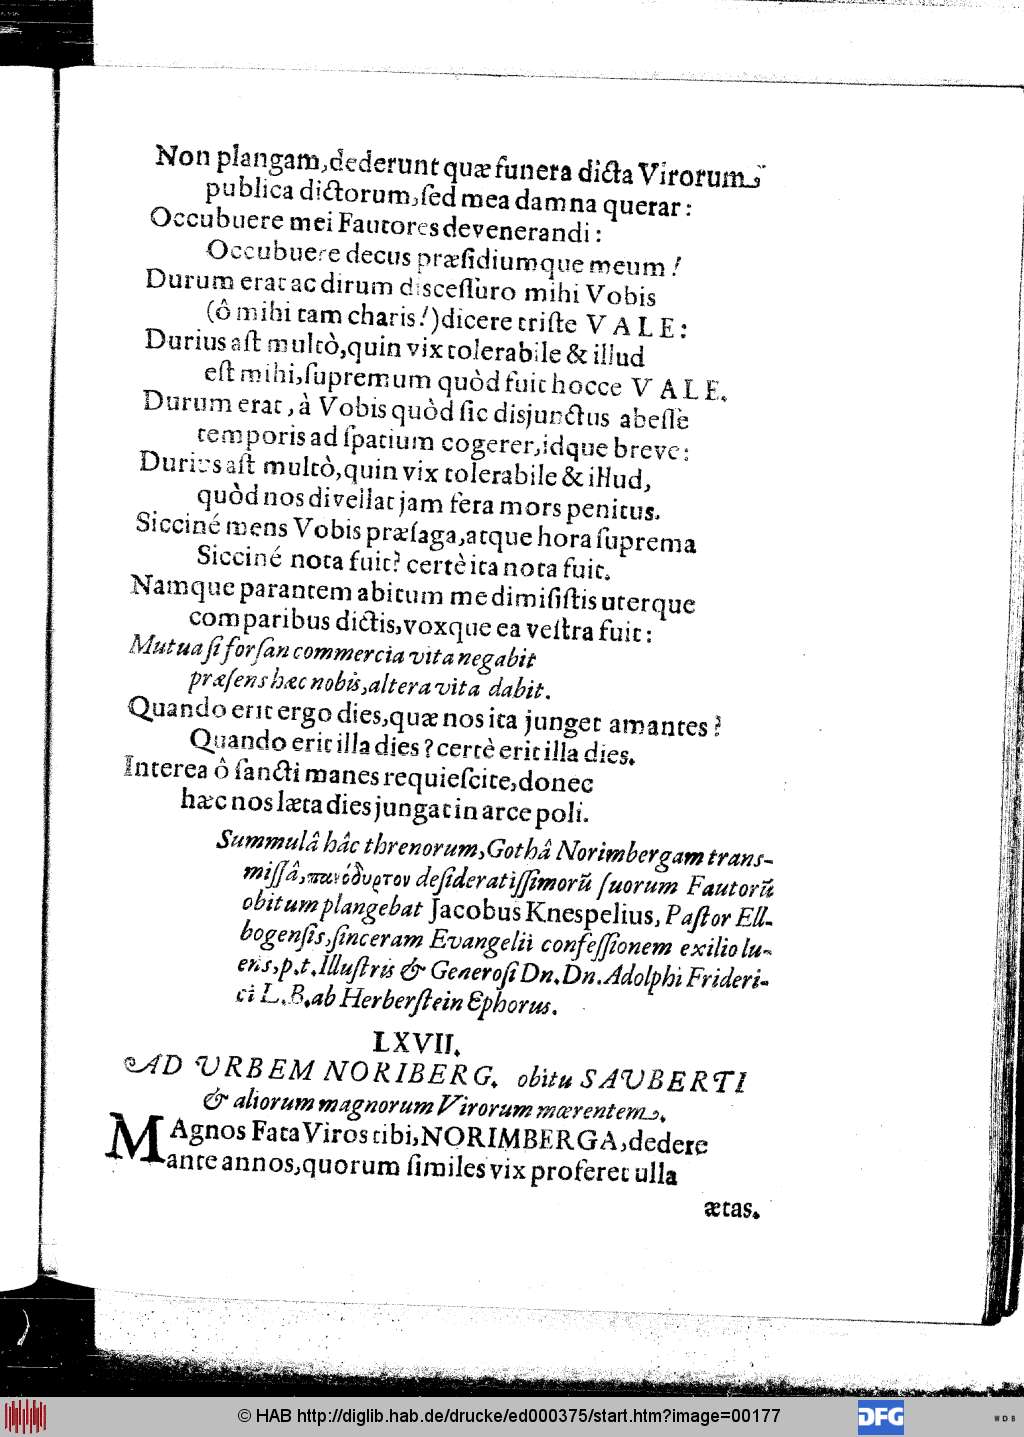 Non plangam, dederunt quæ funera dicta Virorum
publica dictorum, ſed mea damna querar:
Occubuere mei Fautores devenerandi:
Occubuere decus præſidiumque meum!
Durum erat ac dirum diſceſſuro mihi Vobis
(ô mihi tam charis!) dicere triſte VALE:
Durius aſt multò, quin vix tolerabile & illud
eſt mihi, ſupremum quòd fuit hocce VALE.
Durum erat, à Vobis quòd ſic disjunctus abeſſè
temporis ad ſpatium cogerer, idque breve:
Durius aſt multò, quin vix tolerabile & illud,
quòd nos divellat jam fera mors penitus.
Sicciné mens Vobis præſaga, atque hora ſuprema
Sicciné nota fuit? certè ita nota fuit.
Namque parantem abitum me dimiſiſtis uterque
comparibus dictis, voxque ea veſtra fuit:
Mutua ſi forſan commercia vita negabit
præſens hæc nobis, altera vita dabit.
Quando erit ergo dies, quæ nos ita junget amantes?
Quando erit illa dies? certè erit illa dies.
Interea ô ſancti manes requieſcite, donec
hæc nos læta dies jungat in arce poli.
Summulâ hâc threnorum, Gothâ Norimbergam trans-
miſſâ, πανόδυρτον deſideratiſſimorũ ſuorum Fautorũ
obitum plangebat Jacobus Knespelius, Paſtor Ell-
bogenſis, ſinceram Evangelii confeſſionem exilio lu-
ens, p. t. Illuſtris & Generoſi Dn. Dn. Adolphi Frideri-
ci L. B. ab Herberſtein Ephorus.
LXVII.
AD URBEM NORIBERG. obitu SAUBERTI
& aliorum magnorum Virorum mœrentem.
MAgnos Fata Viros tibi, NORIMBERGA, dedere
ante annos, quorum ſimiles vix proferet ulla
ætas.
© HAB http://diglib.hab.de/drucke/ed000375/start.htm?image=00177
DFG
WDB